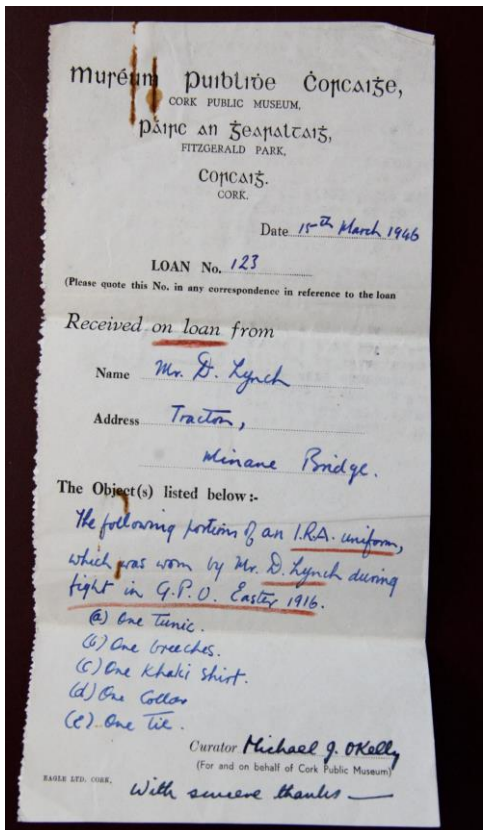 Músaem Puiblidhe Chorcaighe,
CORK PUBLIC MUSEUM,
Páirc an Ghearaltaigh,
FITZGERALD PARK,
Corcaigh.
CORK.
Date 15th March 1946
LOAN No. 123
(Please quote this No. in any correspondence in reference to the loan
Received on loan from
Name Mr. D. Lynch
Address Tracton,
Minane Bridge.
The Object(s) listed below :-
The following portions of an I.R.A. uniform,
which was worn by Mr. D. Lynch during
fight in G.P.O. Easter 1916.
(a) One Tunic.
(b) One breeches.
(c) One Khaki Shirt.
(d) One Collar
(e) One Tie.
Curator Michael J. O'Kelly
(For and on behalf of Cork Public Museum)
EAGLE LTD. CORK.
With sincere thanks —